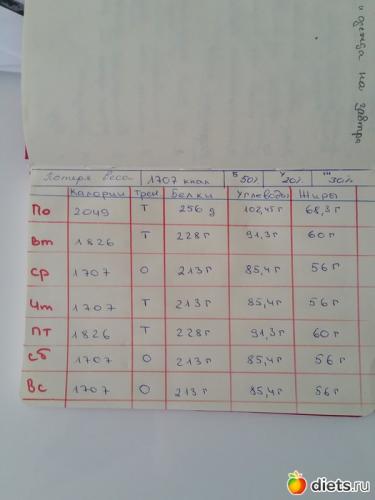 и одежда на завтра
Потеря веса 1707 ккал Б 50% У 20% Ж 30%
Калории Трен Белки Углеводы Жиры
По 2049 Т 256 g 102,45г 68,3 г
Вт 1826 Т 228 г 91,3 г 60 г
Ср 1707 О 213 г 85,4 г 56 г
Чт 1707 Т 213 г 85,4 г 56 г
Пт 1826 Т 228 г 91,3 г 60 г
Сб 1707 О 213 г 85,4 г 56 г
Вс 1707 О 213 г 85,4 г 56 г
diets.ru